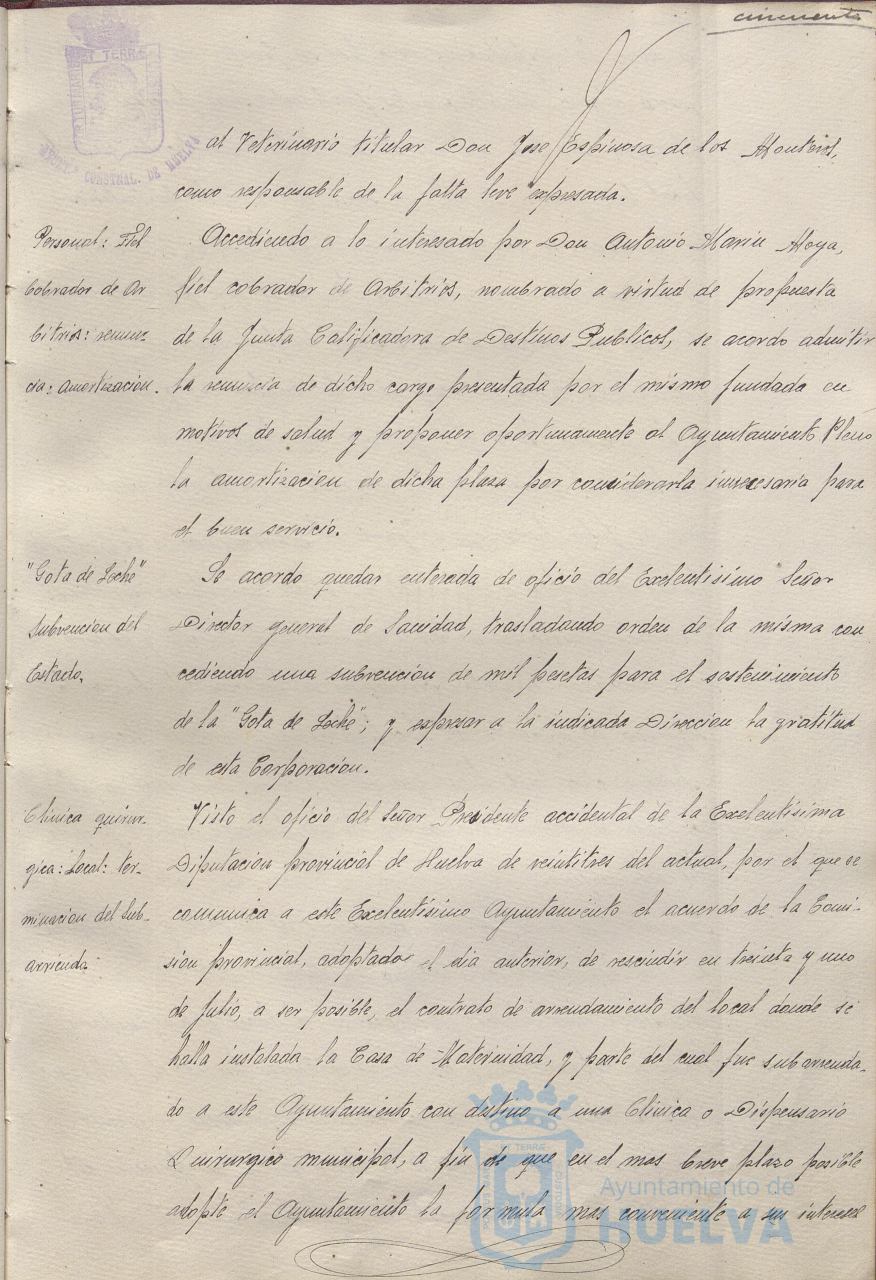 cincuenta
al Veterinario titular Don Jose Espinosa de los Monteros,
como responsable de la falta leve expresada.
Personal: Fiel
Cobrador de Ar
bitrios: renun-
cia: amortización.
Accediendo a lo interesado por Don Antonio Marin Moya,
fiel cobrador de Arbitrios, nombrado a virtud de propuesta
de la Junta Calificadora de Destinos Publicos, se acordo admitir
la renuncia de dicho cargo presentada por el mismo fundada en
motivos de salud y proponer oportunamente al Ayuntamiento Pleno
la amortizacion de dicha plaza por considerarla innecesaria para
el buen servicio.
"Gota de Leche"
Subvencion del
Estado.
Se acordo quedar enterada de oficio del Exelentisimo Señor
Director general de Sanidad, trasladando orden de la misma con
cediendo una subvención de mil pesetas para el sostenimiento
de la "Gota de Leche"; y expresar a la indicada Direccion la gratitud
de esta Corporacion.
Clinica quirur-
gica: Local: ter-
minacion del sub-
arriendo.
Visto el oficio del Señor Presidente accidental de la Exelentisima
Diputacion provincial de Huelva de veintitres del actual, por el que se
comunica a este Exelentisimo Ayuntamiento el acuerdo de la Comi-
sion provincial, adoptado el dia anterior, de rescindir en treinta y uno
de Julio, a ser posible, el contrato de arrendamiento del local donde se
halla instalada la Casa de Maternidad, y parte del cual fue subarrenda-
do a este Ayuntamiento con destino a una Clinica o Dispensario
Quirurgico municipal, a fin de que en el mas breve plazo posible
adopte el Ayuntamiento la formula mas conveniente a sus intereses
Ayuntamiento de
HUELVA